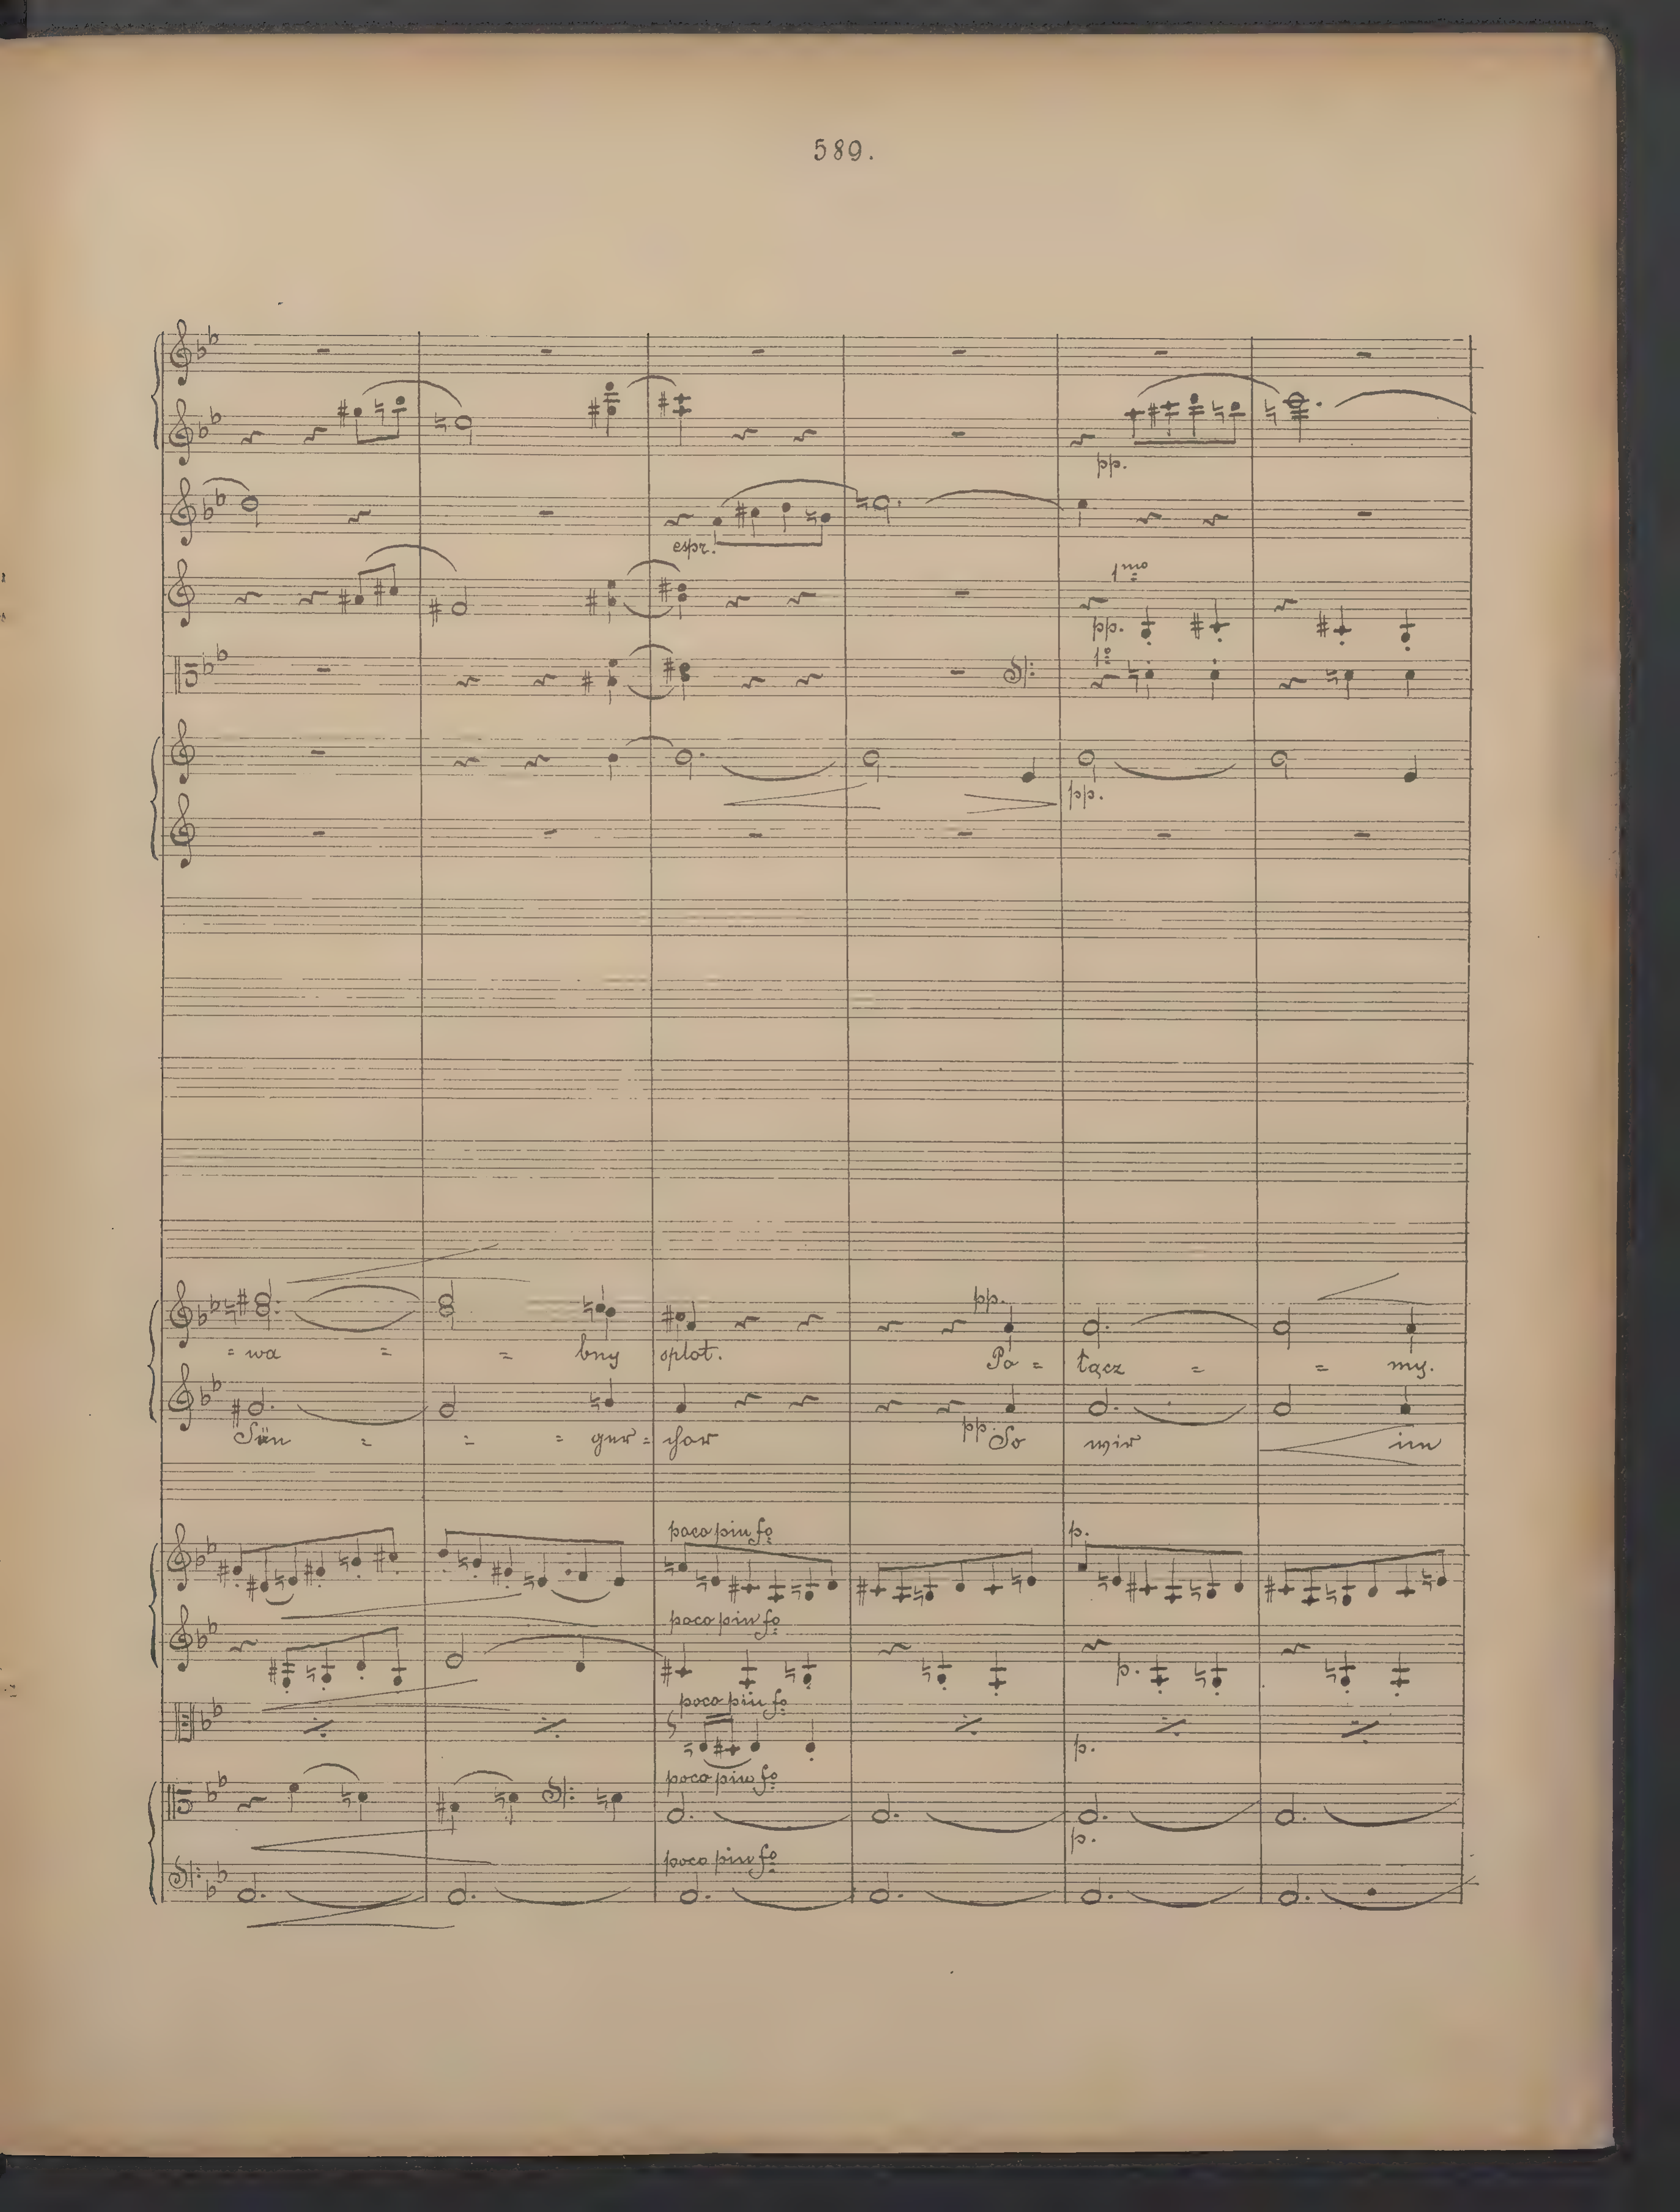 589.
pp.
espr.
1mo
pp.
1o
pp.
pp.
= wa = = bny splot. Po = łącz = = my.
pp.
Sän = = = ger = chor So wir im
poco piu fo p.
poco piu fo
p.
poco piu fo
p.
poco piu fo
p.
poco piu fo